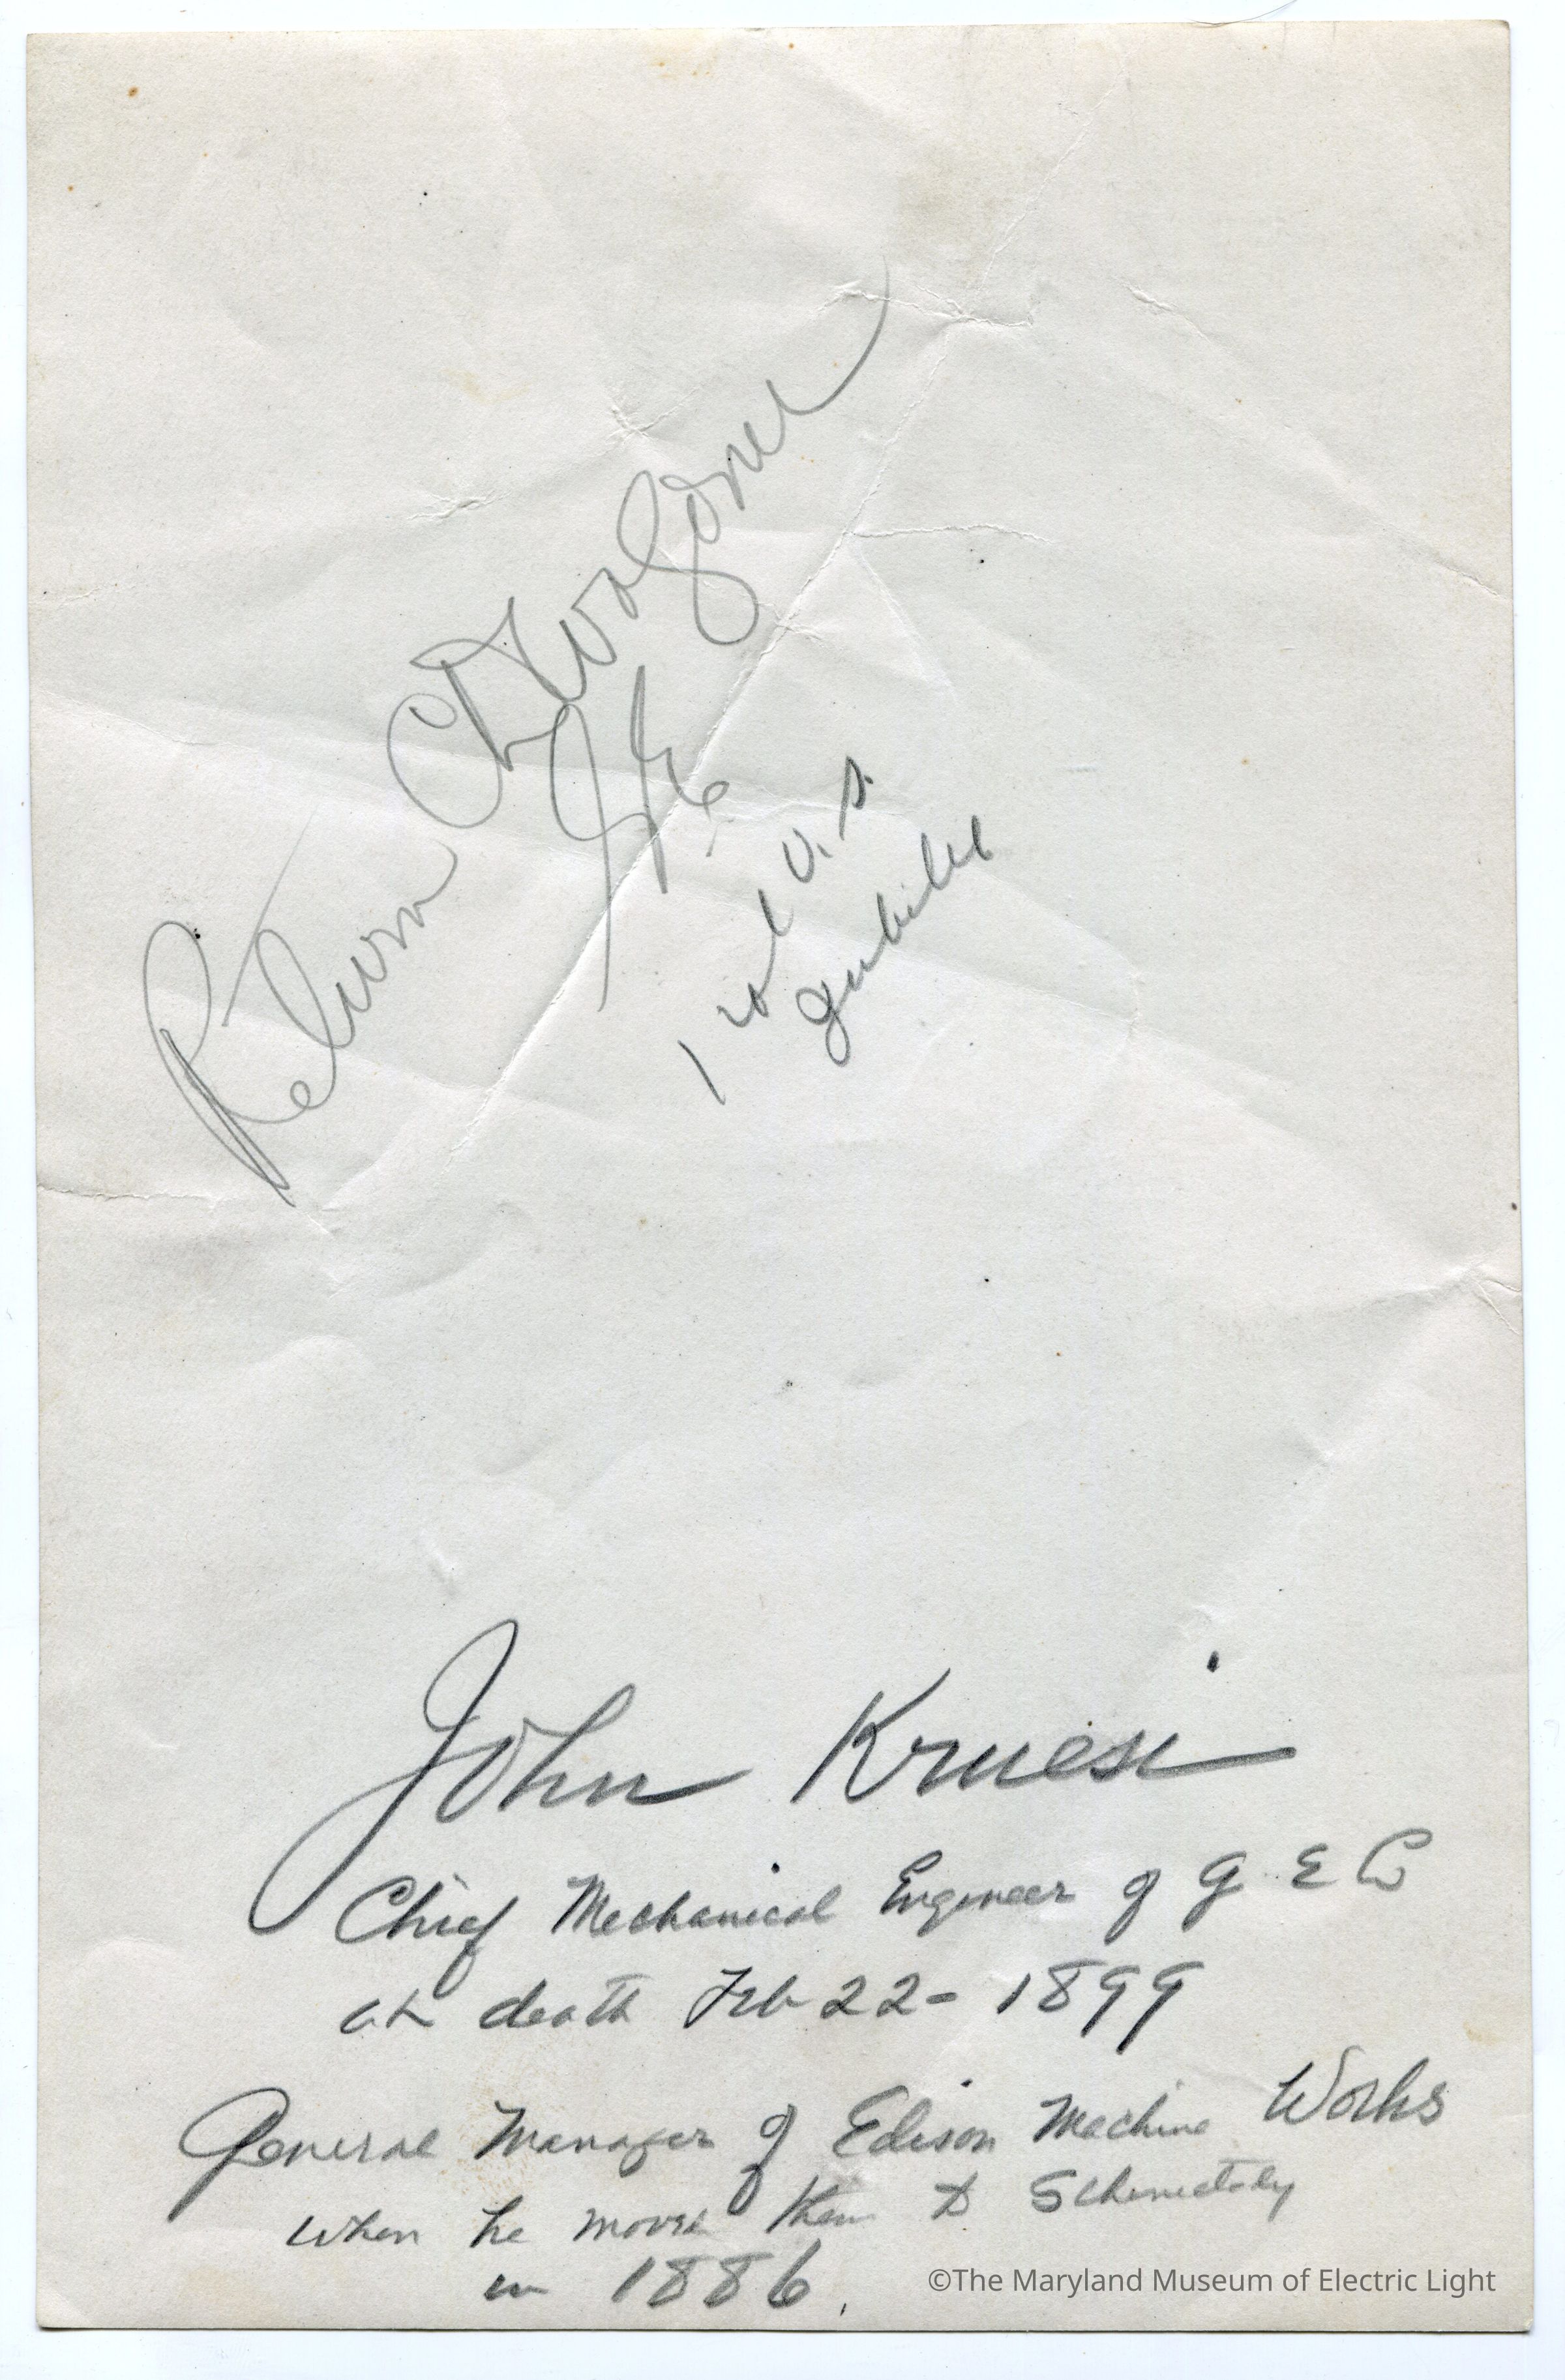 Return
1 col U. S.
John Kruesi
Chief Mechanical Engineer of G E Co
at death Feb 22 - 1899
General Manager of Edison Machine Works
when he moved them to Schenectady
in 1886.
©The Maryland Museum of Electric Light